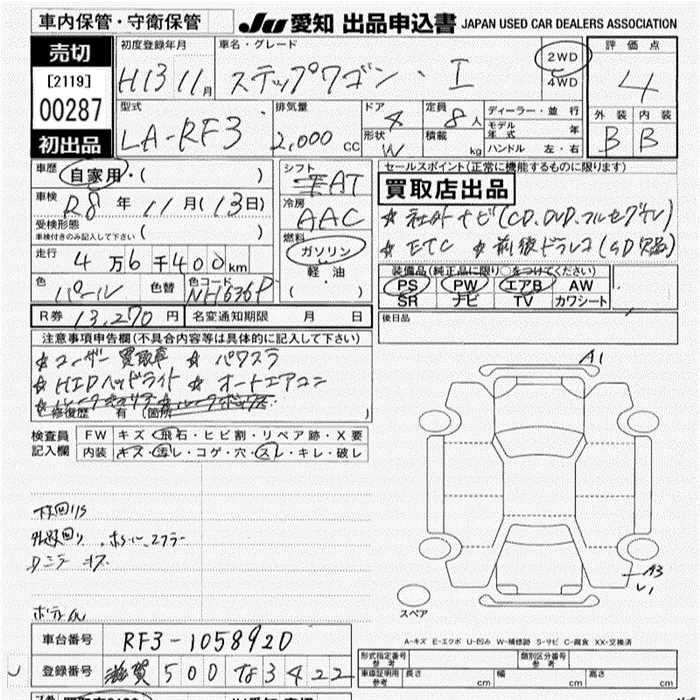 車内保管・守衛保管
JU 愛知 出品申込書 JAPAN USED CAR DEALERS ASSOCIATION
売切
[2119]
00287
初出品
初度登録年月 H13 11月
車名・グレード ステップワゴン・I
2WD
4WD
評価点 4
型式 LA-RF3
排気量 2,000 CC
ドア 4
形状 W
定員 8人
積載 kg
ディーラー・並行
モデル年式 年
ハンドル 左・右
外装 内装
B B
車歴 自家用・( )
車検 R8年11月(13日)
受検形態
車検付きのみ記入して下さい ( )
走行 4万6千400km
色 パール 色替 色コード NH636P
シフト AT
冷房 AAC
燃料 ガソリン
軽油
( ・ )
セールスポイント(正常に機能するものに限ります)
買取店出品
☆社外ナビ(CD、DVD、フルセグTV)
☆ETC ☆前後ドラレコ(SD欠品)
装備品(純正品に限り○をつけてください)
PS PW エアB AW
SR ナビ TV カワシート
R券 13,270円 名変通知期限 月 日
後日品
注意事項申告欄(不具合内容等は具体的に記入して下さい)
☆ユーザー買取車 ☆パワスラ
☆HIDヘッドライト ☆オートエアコン
修復歴 有(箇所 )
検査員記入欄
FW キズ・飛石・ヒビ割・リペア跡・X要
内装 キズ・汚レ・コゲ・穴・スレ・キレ・破レ
下回りS
A1
A3
スペア
A-キズ E-エクボ U-凹み W-補修跡 S-サビ C-腐食 XX-交換済
車台番号 RF3-1058920
登録番号 滋賀 500 な 3422
型式指定番号 参考 類別区分番号 参考
車庫証明用 参考 長さ cm 幅 cm 高さ cm